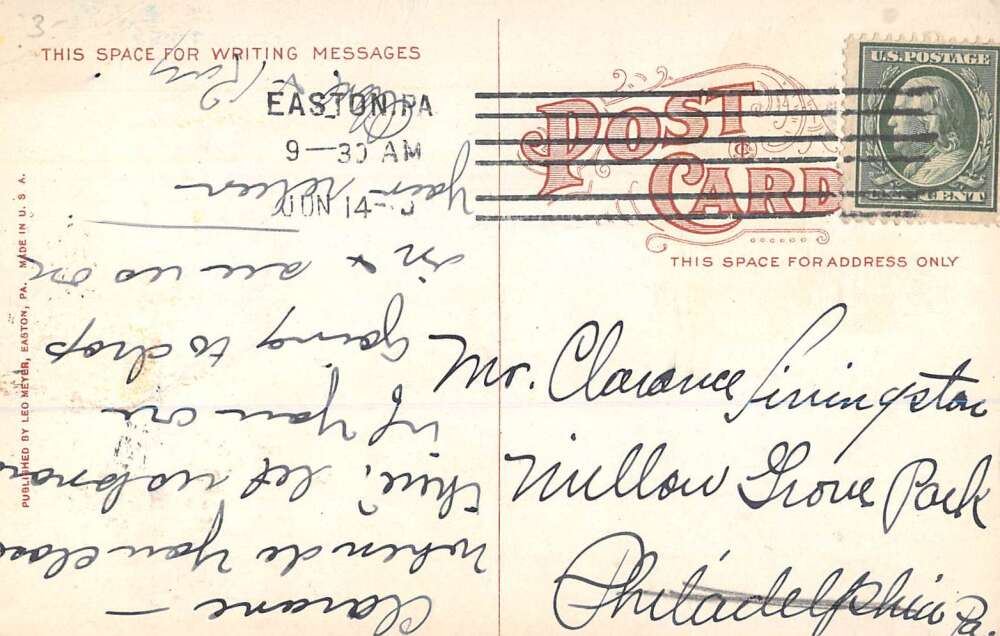 3.
THIS SPACE FOR WRITING MESSAGES
EASTON, PA
9—30 AM
JUN 14
U.S. POSTAGE
CENT
POST
CARD
THIS SPACE FOR ADDRESS ONLY
Mr. Clarance Livingston
Willow Grove Park
Philadelphia Pa.
Clarane —
When do You close
there, let us know
if You are
going to drop
in & see us on
Your return
PUBLISHED BY LEO MEYER, EASTON, PA. MADE IN U. S. A.